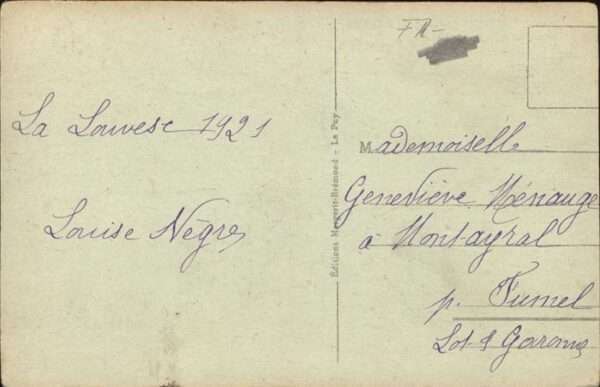 FR-
La Louvesc 1921
Louise Nègre
Éditions Margerit-Brémond - Le Puy
Mademoiselle
Geneviève Ménauge
à Montayral
p. Fumel
Lot & Garonne